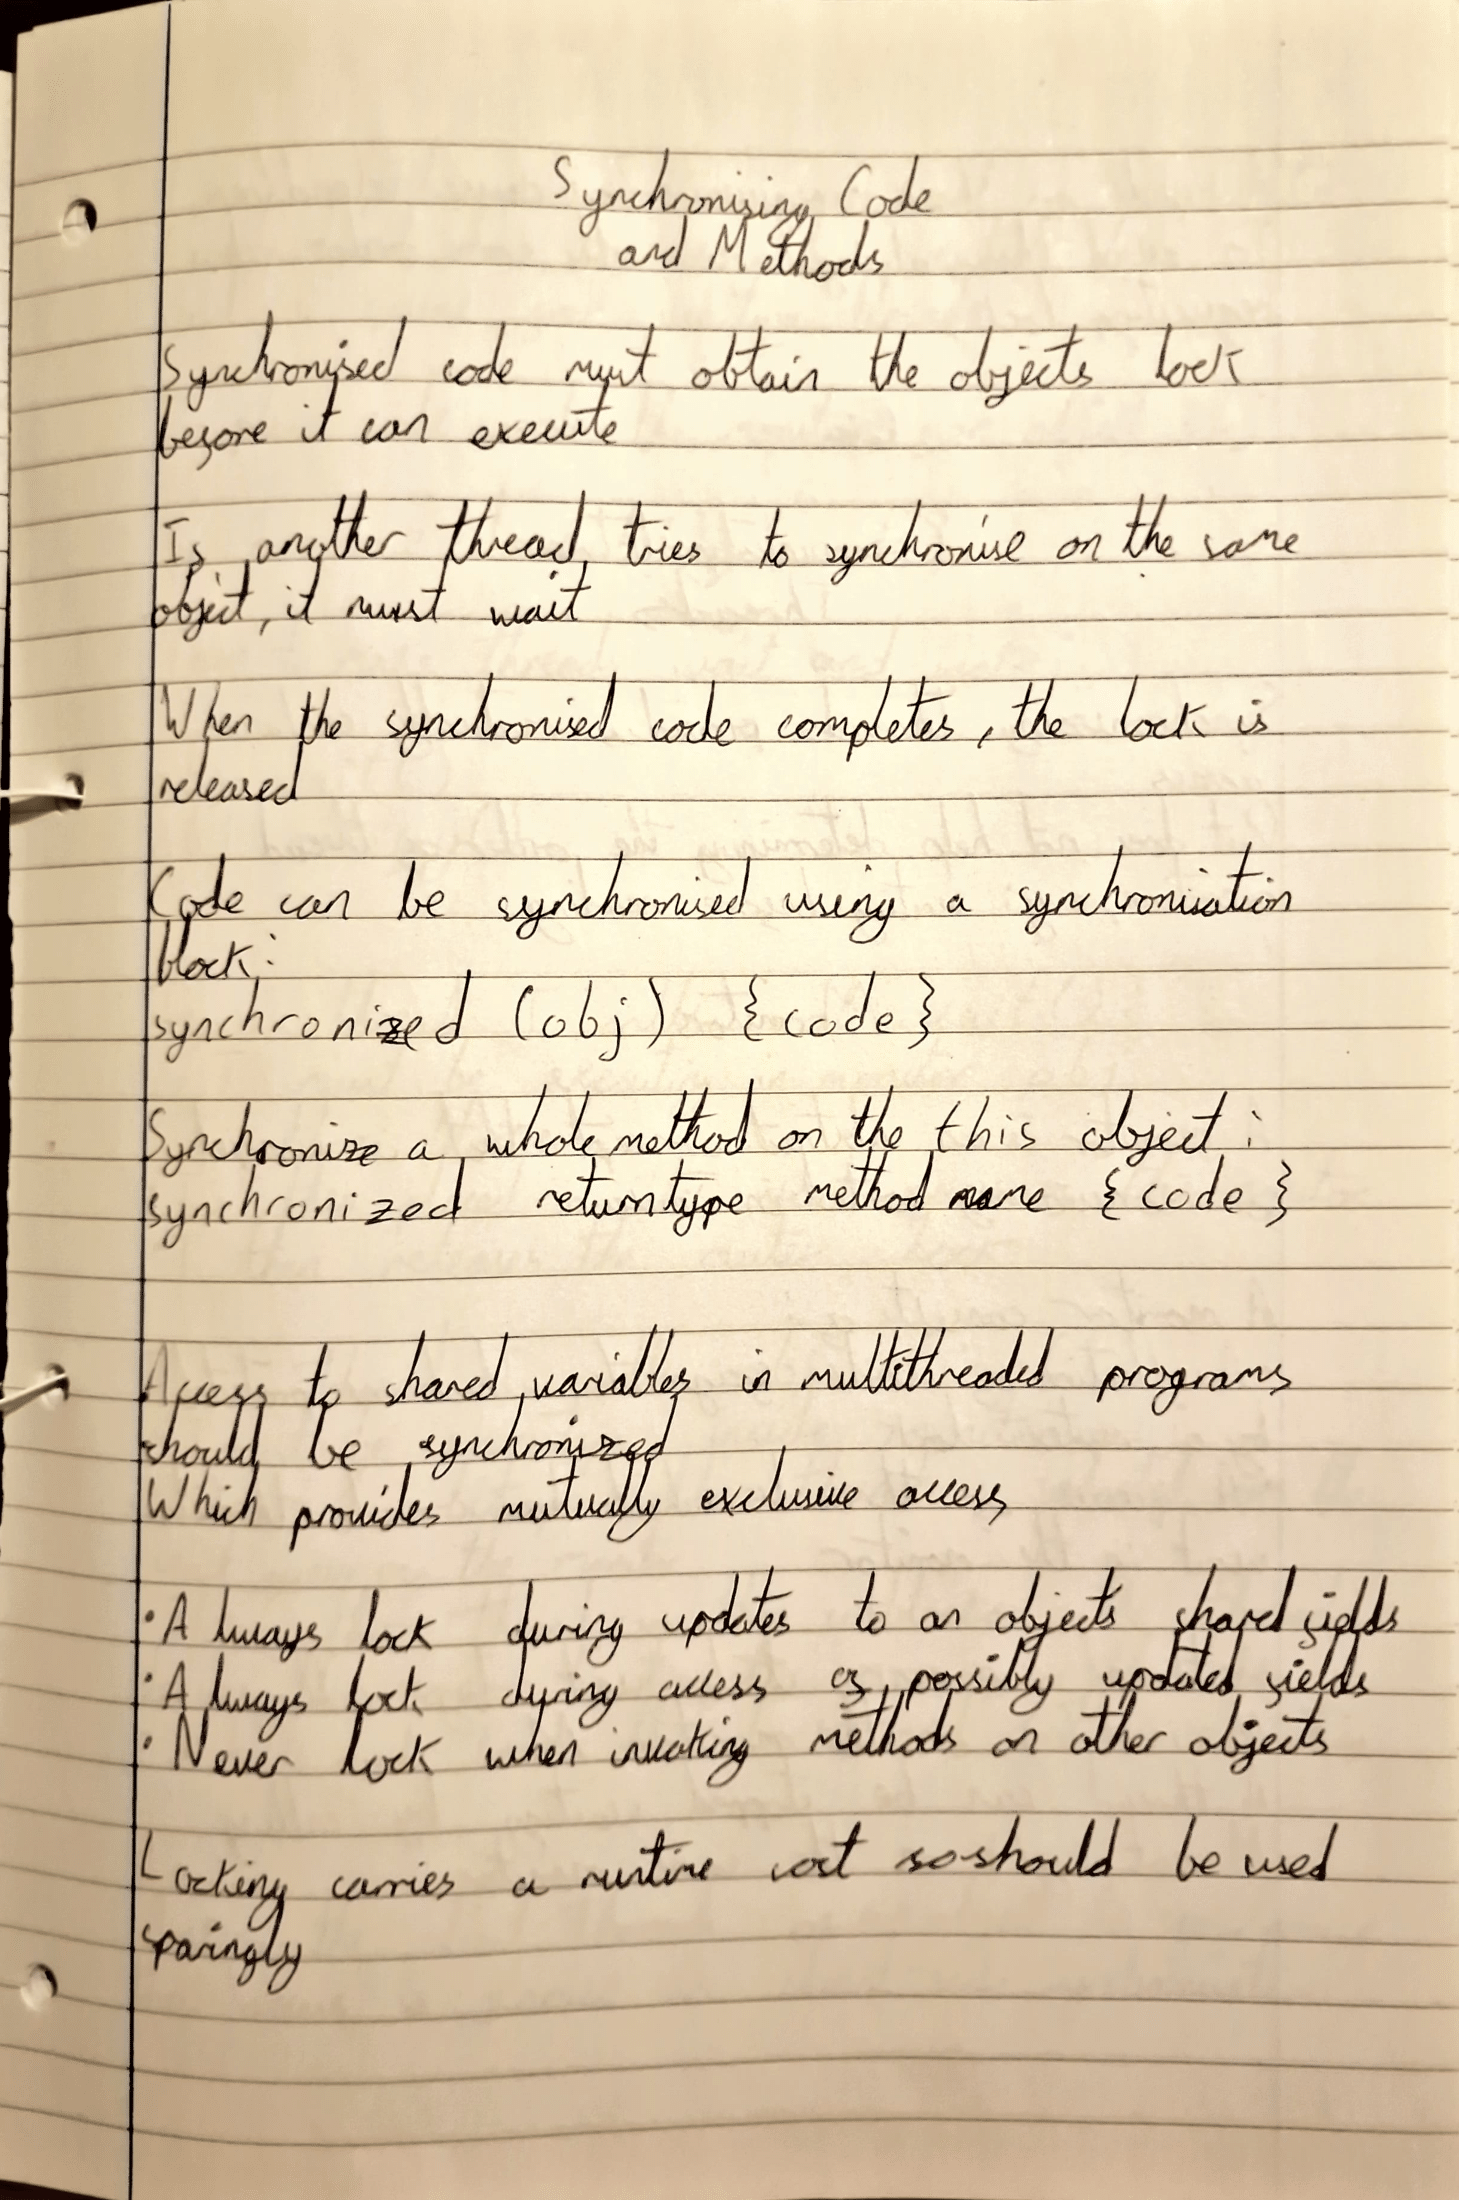 Synchronising Code
and Methods
Synchronised code must obtain the objects lock
before it can execute
If another thread tries to synchronise on the same
object, it must wait
When the synchronised code completes, the lock is
released
Code can be synchronised using a synchronisation
block:
synchronized (obj) {code}
Synchronize a whole method on the this object:
synchronized returntype method name {code}
Access to shared variables in multithreaded programs
should be synchronized
Which provides mutually exclusive access
· Always lock during updates to an objects shared fields
· Always lock during access of possibly updated fields
· Never lock when invoking methods on other objects
Locking carries a runtime cost so should be used
sparingly